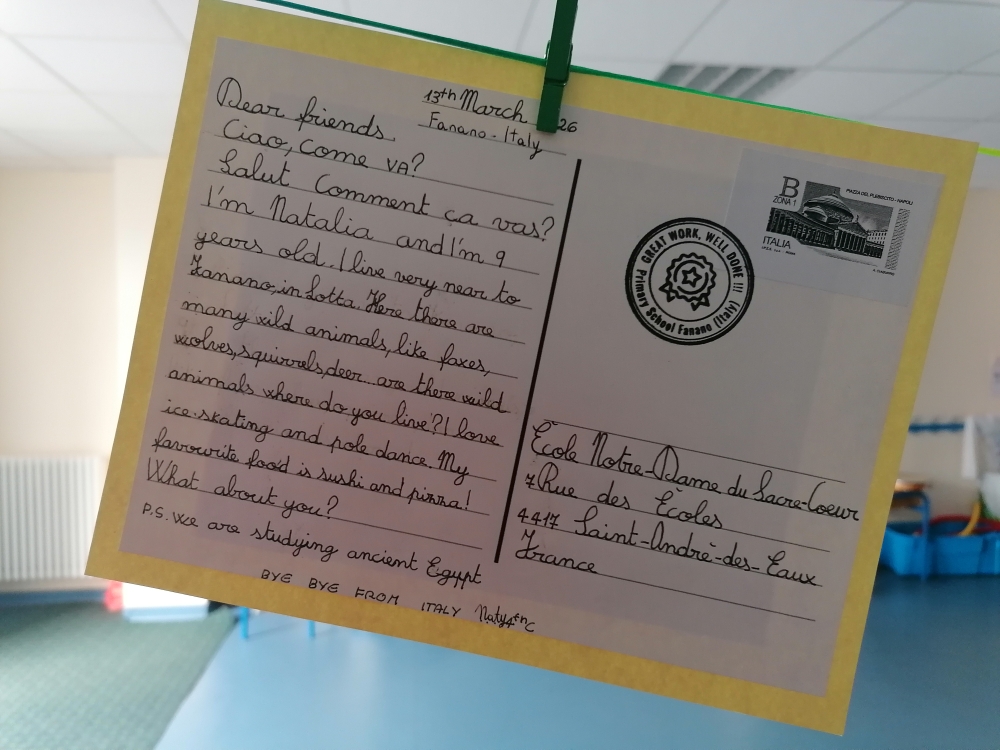 13th March 26
Fanano - Italy
Dear friends.
Ciao, come va?
Salut Comment ça vas?
I'm Natalia and I'm 9
years old. I live very near to
Fanano, in Lotta. Here there are
many wild animals, like foxes,
wolves, squirrels, deer... are there wild
animals where do you live? I love
ice-skating and pole dance. My
favourite food is sushi and pizza!
What about you?
P.S. we are studying ancient Egypt
BYE BYE FROM ITALY Naty 4th C
B
ZONA 1
PIAZZA DEL PLEBISCITO - NAPOLI
ITALIA
GREAT WORK, WELL DONE !!!
Primary School Fanano (Italy)
École Notre-Dame du Sacre-Coeur
7 Rue des Ècoles
4417 Saint-Andrè-des-Eaux
France